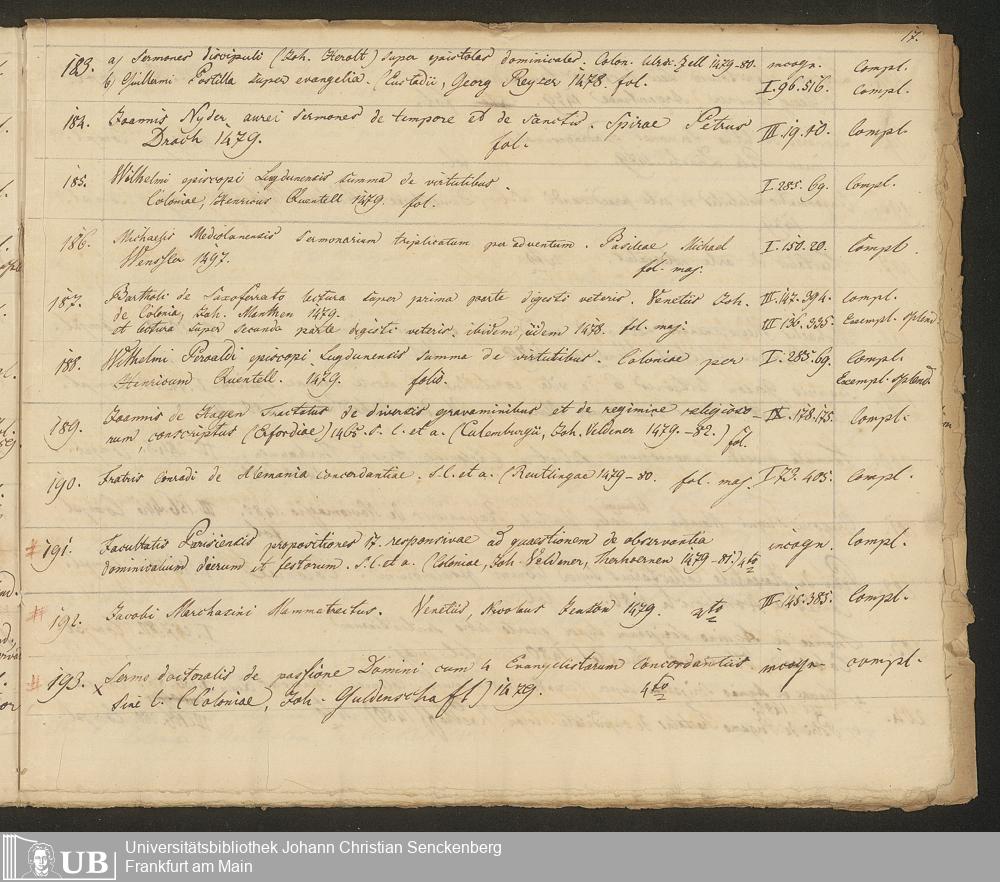 17.
183. a) Sermones discipuli (Joh. Herolt) super epistolas dominicales. Colon. Ulric. Zell 1479-80. incogn. Compl.
b) Guillerni Postilla super evangelia. (Eustadii, Georg Reyser 1478. fol. I. 96. 516. Compl.
184. Joannis Nyder, aurei sermones de tempore et de sanctis. Spirae Petrus III. 19. 10. Compl.
Drach 1479. fol.
185. Wilhelmi episcopi Lugdunensis summa de virtutibus. I. 285. 69. Compl.
Coloniae, Henricus Quentell 1479. fol.
186. Michaelis Mediolanensis Sermonarium triplicatum per adventum. Basileae, Michael I. 150. 20. Compl.
Wenssler 1497. fol. maj.
187. Bartholi de Saxoferrato lectura super prima parte digesti veteris. Venetiis Joh. III. 147. 394. Compl.
de Colonia, Joh. Manthen 1479.
et lectura super secunda parte digesti veteris, ibidem, iidem 1478. fol. maj. III 136. 335. Exempl. splend.
188. Wilhelmi Peroaldi episcopi Lugdunensis summa de virtutibus. Coloniae per I. 285. 69. Compl.
Henricum Quentell. 1479. folio. Exempl. splend.
189. Joannis de Hagen Tractatus de diversis gravaminibus et de regimine religioso- IX. 178. 175. Compl.
rum, conscriptus (Erfordiae) 1465. S. l. et a. (Culemburgii, Joh. Veldener 1479-82.) fol.
190. Fratris Conradi de Alemania concordantiae. S. l. et a. (Reutlingae 1479-80. fol. maj. I 73. 405. Compl.
# 191. Facultatis Parisiensis propositiones 17. responsivae ad quaestionem de observantia incogn. Compl.
dominicalium dierum et festorum. S. l. et a. (Coloniae, Joh. Veldener, Therhoernen 1479-81.) 4to
# 192. Jacobi Marchasini Mammatrectus. Venetiis, Nicolaus Jenson 1479. 4to III 145. 385. Compl.
# 193. x Sermo doctoralis de passione Domini cum 4 Evangelistarum concordantiis incogn. compl.
sine l. (Coloniae, Joh. Guldenschaft) 1479. 4to
UB
Universitätsbibliothek Johann Christian Senckenberg
Frankfurt am Main